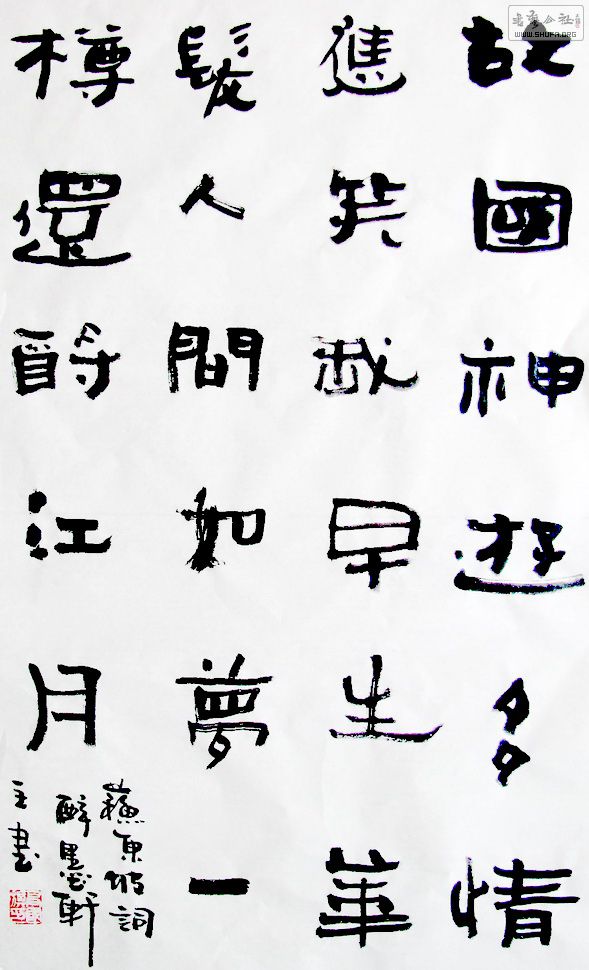 故國神遊多情
應笑我早生華
髮人間如夢一
樽還酹江月
蘇東坡詞
醉墨軒
主書
書藝公社
WWW.SHUFA.ORG